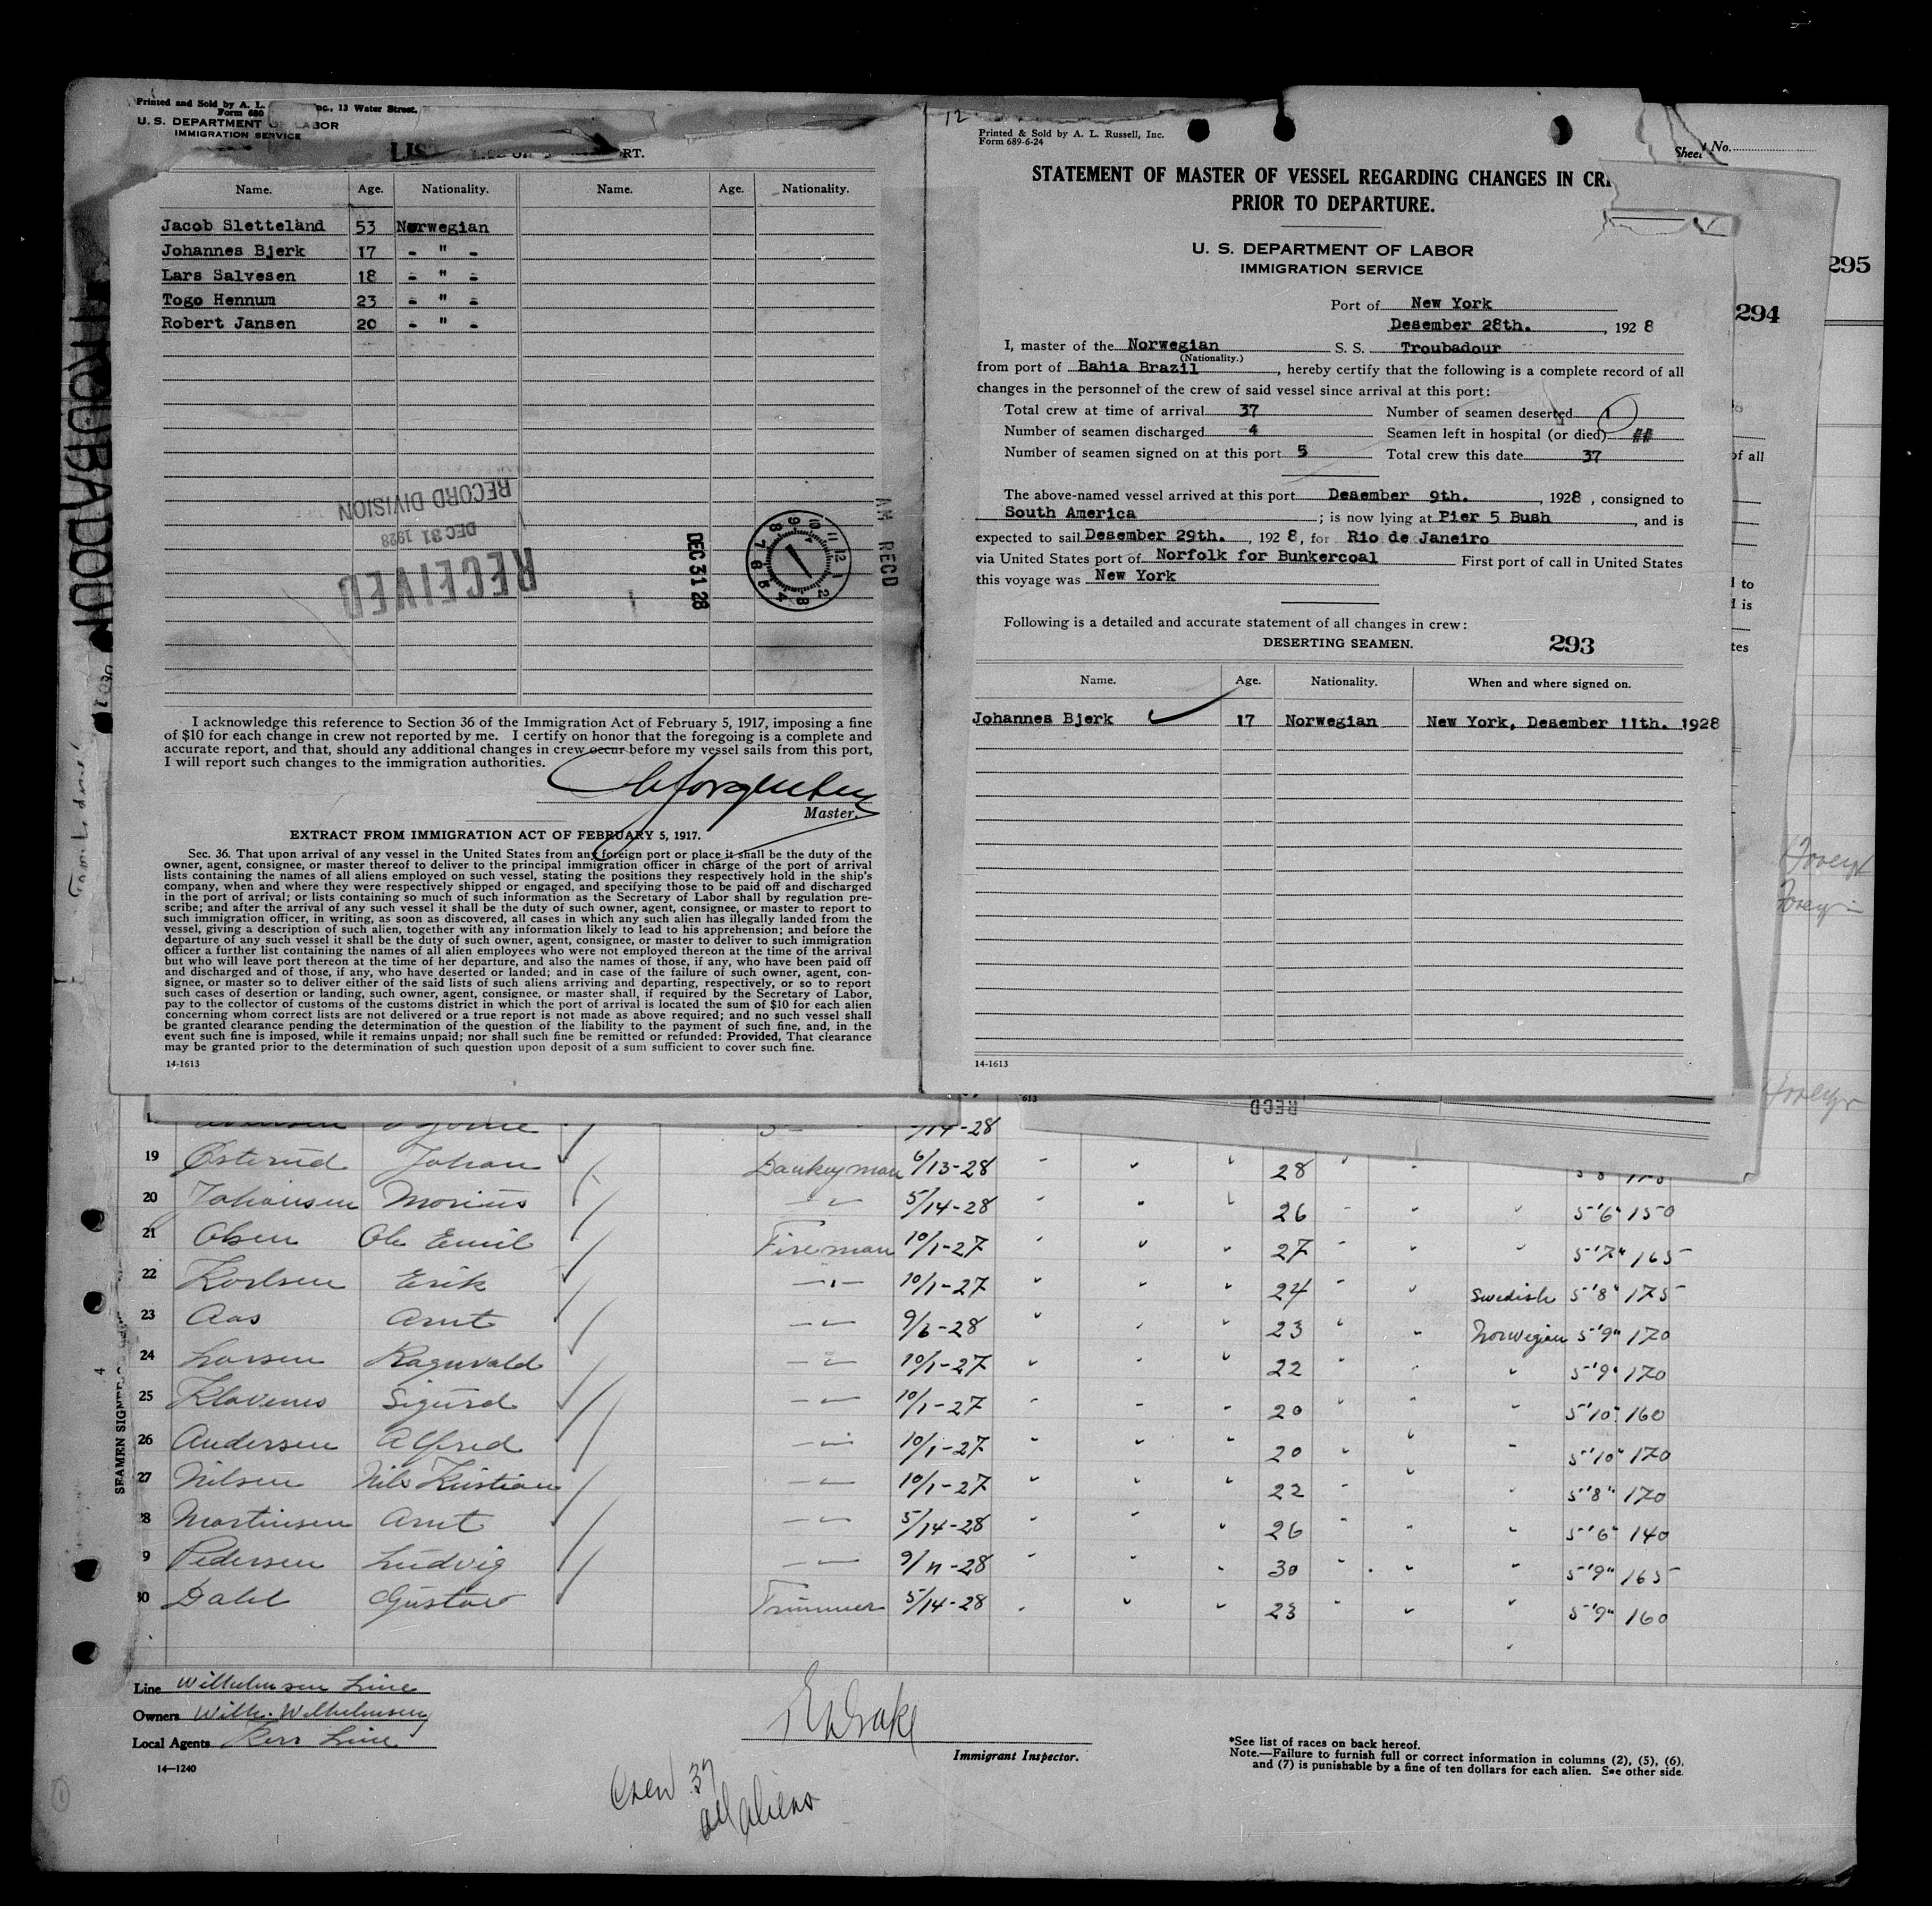 Printed and Sold by A. L. nc., 13 Water Street.
Form 680
U. S. DEPARTMENT OF LABOR
IMMIGRATION SERVICE
LIS RT.
Name. Age. Nationality. Name. Age. Nationality.
Jacob Sletteland 53 Norwegian
Johannes Bjerk 17 - " -
Lars Salvesen 18 - " -
Togo Hennum 23 - " -
Robert Jansen 20 - " -
RECEIVED
DEC 31 1928
RECORD DIVISION
DEC 31 28
AM RECD
I acknowledge this reference to Section 36 of the Immigration Act of February 5, 1917, imposing a fine
of $10 for each change in crew not reported by me. I certify on honor that the foregoing is a complete and
accurate report, and that, should any additional changes in crew occur before my vessel sails from this port,
I will report such changes to the immigration authorities.
Master.
EXTRACT FROM IMMIGRATION ACT OF FEBRUARY 5, 1917.
Sec. 36. That upon arrival of any vessel in the United States from any foreign port or place it shall be the duty of the
owner, agent, consignee, or master thereof to deliver to the principal immigration officer in charge of the port of arrival
lists containing the names of all aliens employed on such vessel, stating the positions they respectively hold in the ship's
company, when and where they were respectively shipped or engaged, and specifying those to be paid off and discharged
in the port of arrival; or lists containing so much of such information as the Secretary of Labor shall by regulation pre-
scribe; and after the arrival of any such vessel it shall be the duty of such owner, agent, consignee, or master to report to
such immigration officer, in writing, as soon as discovered, all cases in which any such alien has illegally landed from the
vessel, giving a description of such alien, together with any information likely to lead to his apprehension; and before the
departure of any such vessel it shall be the duty of such owner, agent, consignee, or master to deliver to such immigration
officer a further list containing the names of all alien employees who were not employed thereon at the time of the arrival
but who will leave port thereon at the time of her departure, and also the names of those, if any, who have been paid off
and discharged and of those, if any, who have deserted or landed; and in case of the failure of such owner, agent, con-
signee, or master so to deliver either of the said lists of such aliens arriving and departing, respectively, or so to report
such cases of desertion or landing, such owner, agent, consignee, or master shall, if required by the Secretary of Labor,
pay to the collector of customs of the customs district in which the port of arrival is located the sum of $10 for each alien
concerning whom correct lists are not delivered or a true report is not made as above required; and no such vessel shall
be granted clearance pending the determination of the question of the liability to the payment of such fine, and, in the
event such fine is imposed, while it remains unpaid; nor shall such fine be remitted or refunded: Provided, That clearance
may be granted prior to the determination of such question upon deposit of a sum sufficient to cover such fine.
14-1613
TROUBADOUR
12
Printed & Sold by A. L. Russell, Inc.
Form 689-6-24
Sheet No.
STATEMENT OF MASTER OF VESSEL REGARDING CHANGES IN CR
PRIOR TO DEPARTURE.
U. S. DEPARTMENT OF LABOR
IMMIGRATION SERVICE
295
294
Port of New York
Desember 28th. , 192 8
I, master of the Norwegian S. S. Troubadour
(Nationality.)
from port of Bahia Brazil , hereby certify that the following is a complete record of all
changes in the personnel of the crew of said vessel since arrival at this port:
Total crew at time of arrival 37 Number of seamen deserted 1
Number of seamen discharged 4 Seamen left in hospital (or died) ##
Number of seamen signed on at this port 5 Total crew this date 37
The above-named vessel arrived at this port Desember 9th. , 1928 , consigned to
South America ; is now lying at Pier 5 Bush , and is
expected to sail Desember 29th. , 192 8, for Rio de Janeiro
via United States port of Norfolk for Bunkercoal First port of call in United States
this voyage was New York
Following is a detailed and accurate statement of all changes in crew:
DESERTING SEAMEN. 293
Name. Age. Nationality. When and where signed on.
Johannes Bjerk 17 Norwegian New York, Desember 11th. 1928
14-1613
of all
to
is
tes
613
RECD
/14-28
19 Østerud Johan Donkeyman 6/13-28 28
20 Johansen Morius 5/14-28 26 5'6" 150
21 Olsen Ole Emil Fireman 10/1-27 27 5'7" 165
22 Karlsen Erik 10/1-27 24 Swedish 5'8" 175
23 Aas Arnt 9/6-28 23 Norwegian 5'9" 170
24 Larsen Ragnvald 10/1-27 22 5'9" 170
25 Klavenes Sigurd 10/1-27 20 5'10" 160
26 Andersen Alfred 10/1-27 20 5'10" 170
27 Nilsen Nils Kristian 10/1-27 22 5'8" 170
8 Martinsen Arnt 5/14-28 26 5'6" 140
9 Pedersen Ludvig 9/11-28 30 5'9" 165
30 Dahl Gustav Trimmer 5/14-28 23 5'9" 160
SEAMEN SIGNE
Line Wilhelmsen Line
Owners Wilh. Wilhelmsen
Local Agents Kerr Line
14—1240
Immigrant Inspector.
*See list of races on back hereof.
Note.—Failure to furnish full or correct information in columns (2), (5), (6),
and (7) is punishable by a fine of ten dollars for each alien. See other side.
Crew 37
all aliens